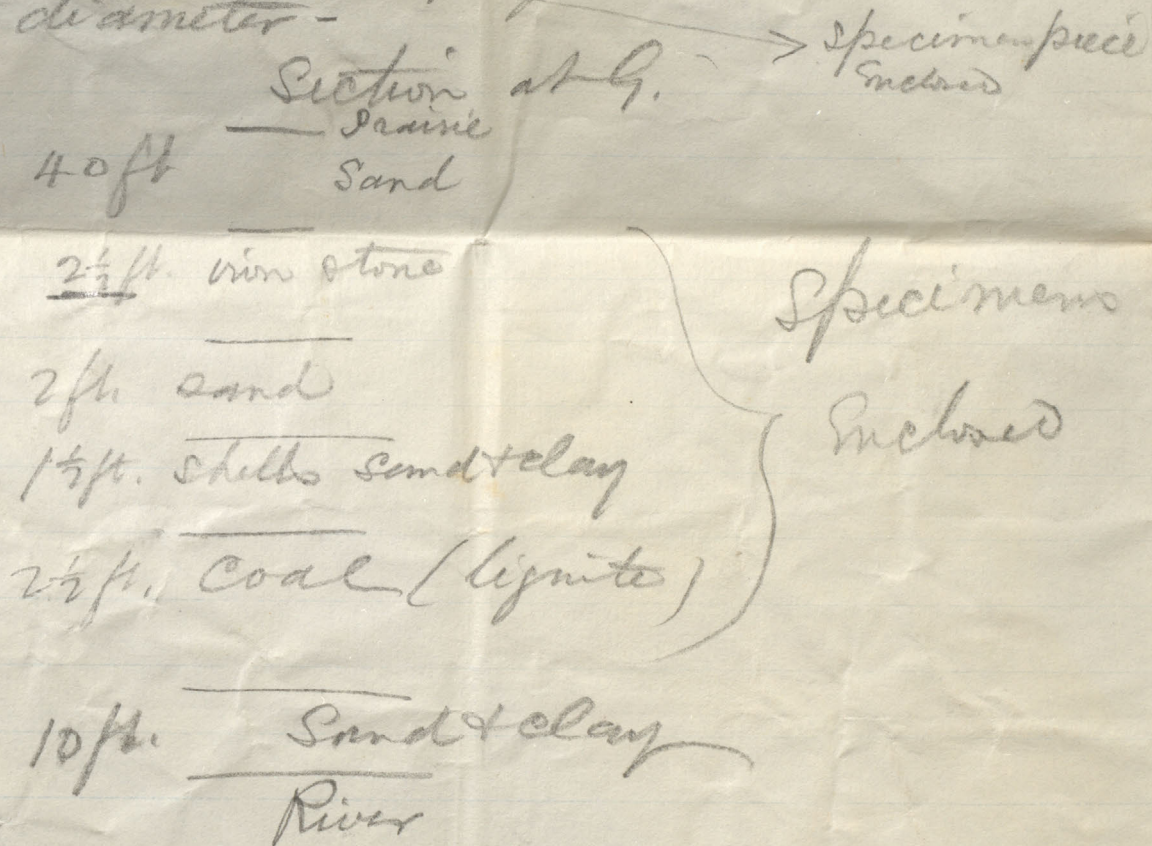 diameter -
specimen piece
Enclosed
Section at G.
Prairie
40 ft Sand
2½ ft. iron stone
2 ft. sand
1½ ft. shells sand & clay
2½ ft. Coal (lignite)
Specimens
Enclosed
10 ft. Sand & clay
River